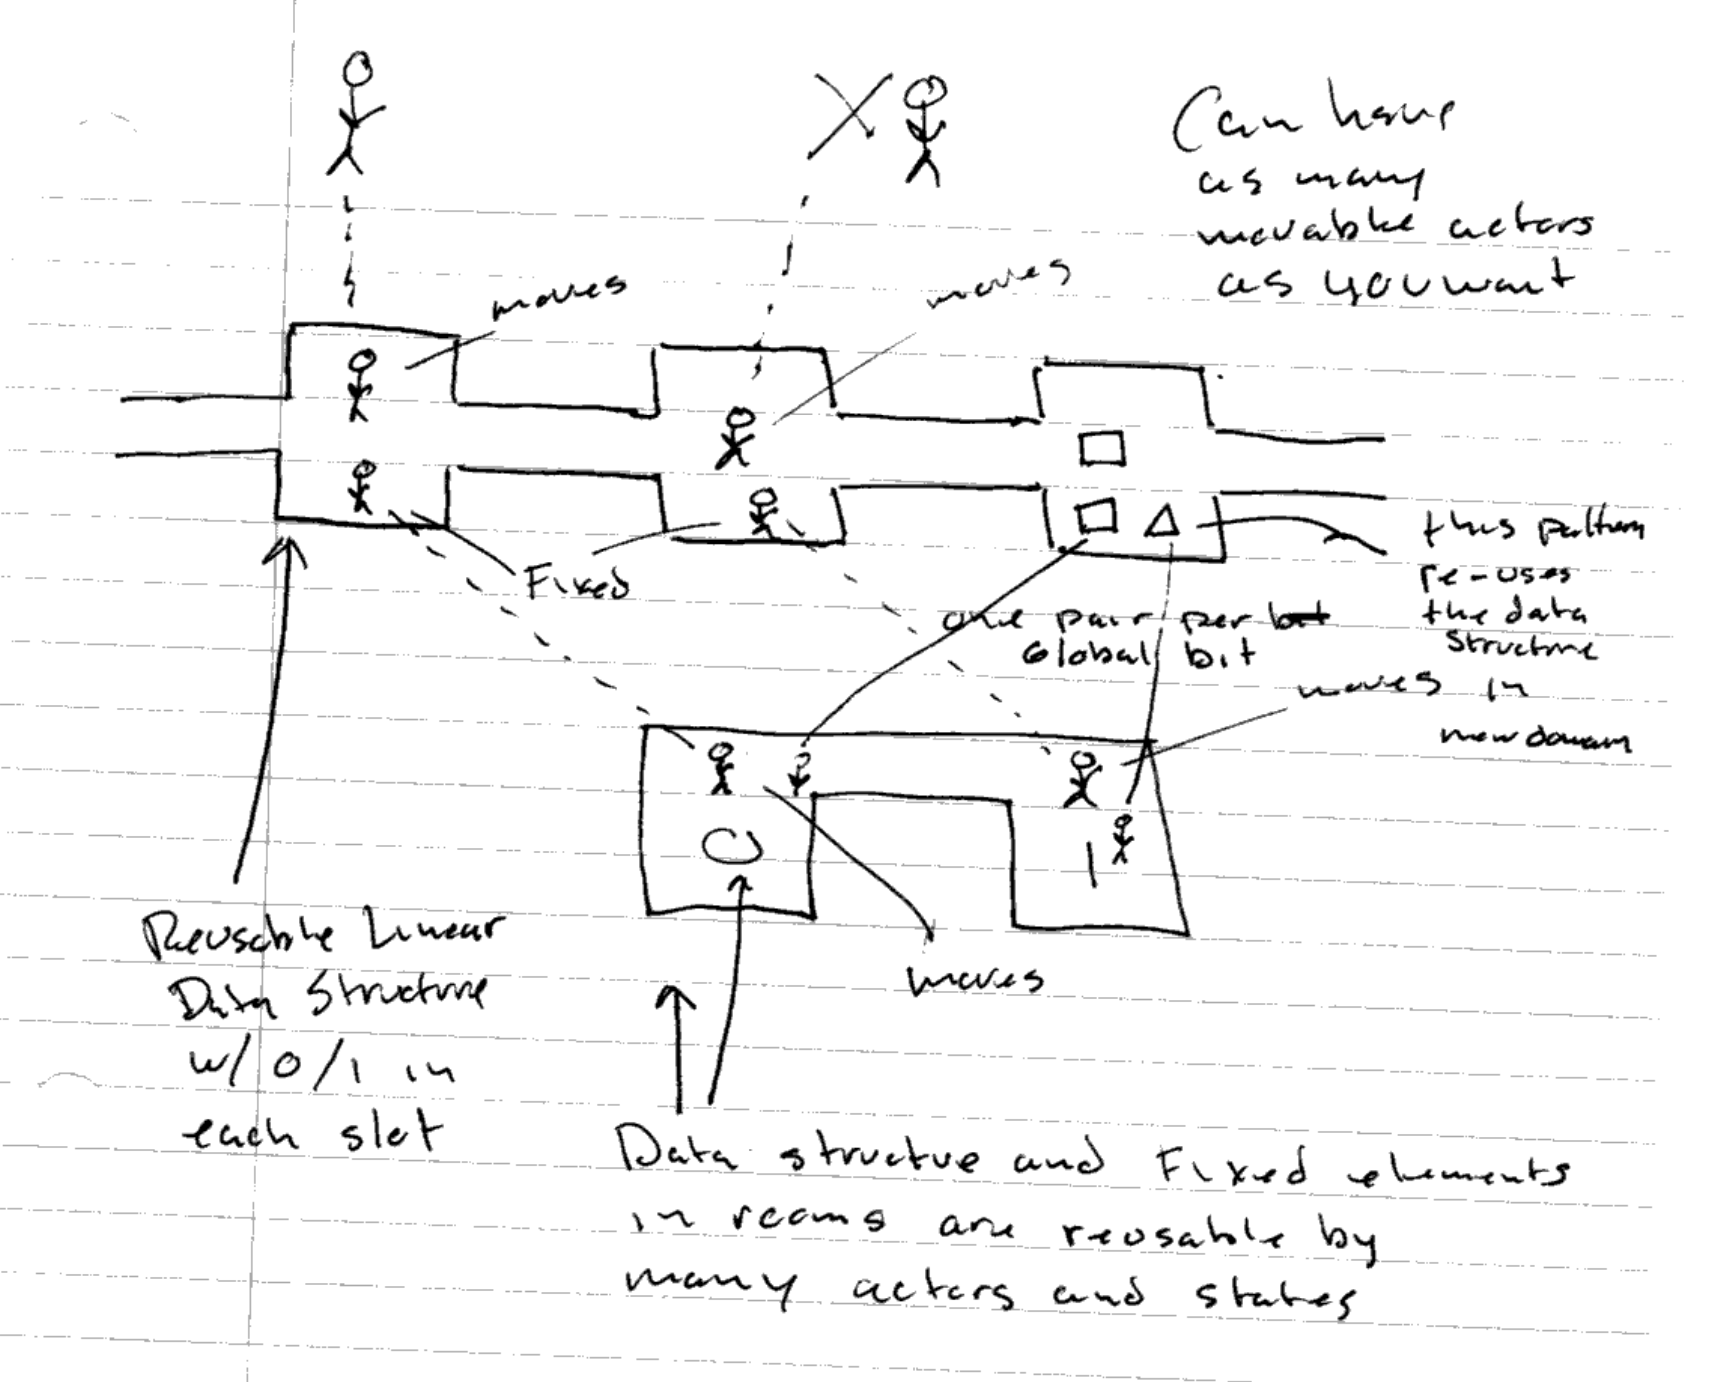 Can have
as many
movable actors
as you want
moves
moves
Fixed
this pattern
re-uses
the data
structure
one pair per bit
Global bit
moves in
new domain
0
1
moves
Reusable Linear
Data Structure
w/ 0/1 in
each slot
Data structure and Fixed elements
in rooms are reusable by
many actors and states